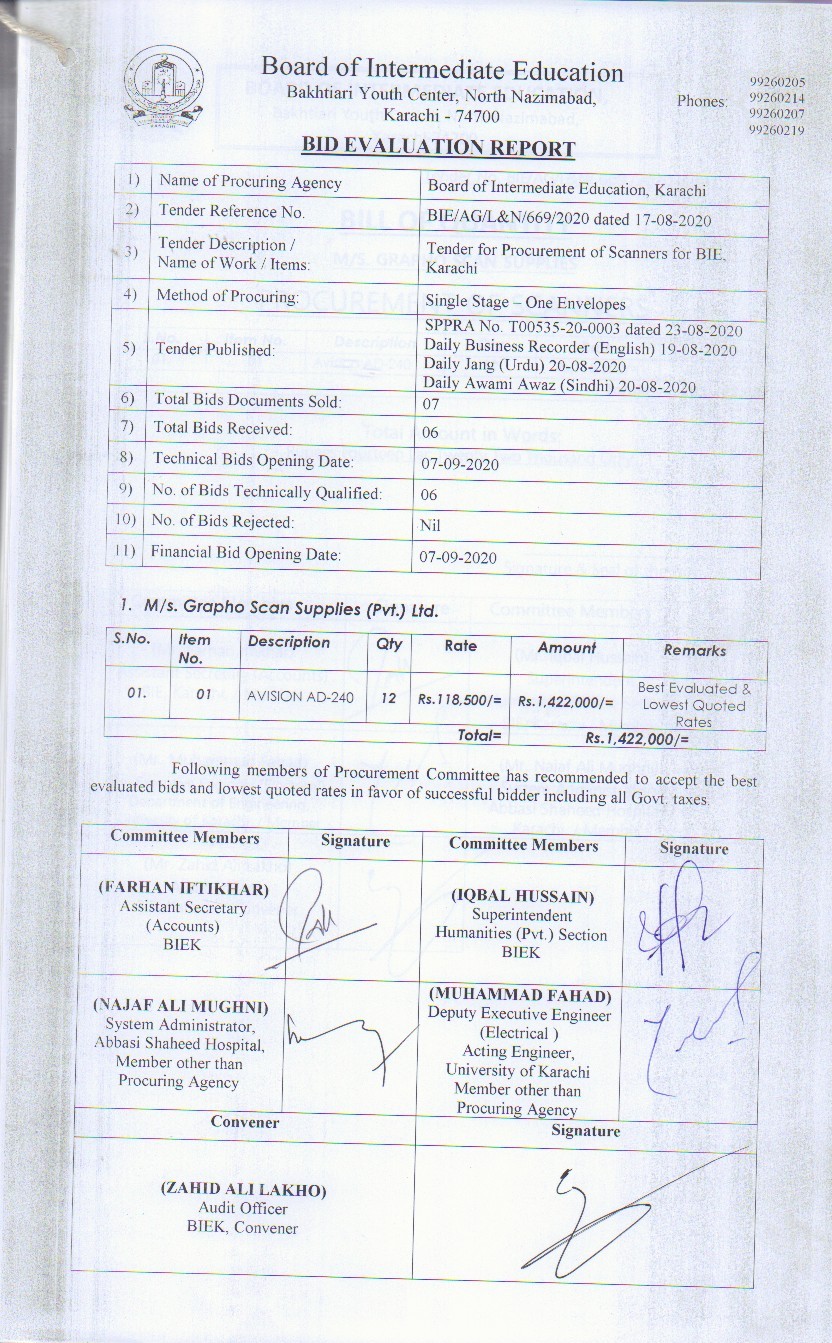 Board of Intermediate Education
Bakhtiari Youth Center, North Nazimabad,
Karachi - 74700
Phones:
99260205
99260214
99260207
99260219
KARACHI
BID EVALUATION REPORT
1) Name of Procuring Agency Board of Intermediate Education, Karachi
2) Tender Reference No. BIE/AG/L&N/669/2020 dated 17-08-2020
3) Tender Description /
Name of Work / Items:
Tender for Procurement of Scanners for BIE,
Karachi
4) Method of Procuring: Single Stage – One Envelopes
5) Tender Published:
SPPRA No. T00535-20-0003 dated 23-08-2020
Daily Business Recorder (English) 19-08-2020
Daily Jang (Urdu) 20-08-2020
Daily Awami Awaz (Sindhi) 20-08-2020
6) Total Bids Documents Sold: 07
7) Total Bids Received: 06
8) Technical Bids Opening Date: 07-09-2020
9) No. of Bids Technically Qualified: 06
10) No. of Bids Rejected: Nil
11) Financial Bid Opening Date: 07-09-2020
1. M/s. Grapho Scan Supplies (Pvt.) Ltd.
S.No. Item No. Description Qty Rate Amount Remarks
01. 01 AVISION AD-240 12 Rs.118,500/= Rs.1,422,000/= Best Evaluated &
Lowest Quoted
Rates
Total= Rs.1,422,000/=
Following members of Procurement Committee has recommended to accept the best
evaluated bids and lowest quoted rates in favor of successful bidder including all Govt. taxes.
Committee Members Signature Committee Members Signature
(FARHAN IFTIKHAR)
Assistant Secretary
(Accounts)
BIEK
(IQBAL HUSSAIN)
Superintendent
Humanities (Pvt.) Section
BIEK
(NAJAF ALI MUGHNI)
System Administrator,
Abbasi Shaheed Hospital,
Member other than
Procuring Agency
(MUHAMMAD FAHAD)
Deputy Executive Engineer
(Electrical )
Acting Engineer,
University of Karachi
Member other than
Procuring Agency
Convener Signature
(ZAHID ALI LAKHO)
Audit Officer
BIEK, Convener